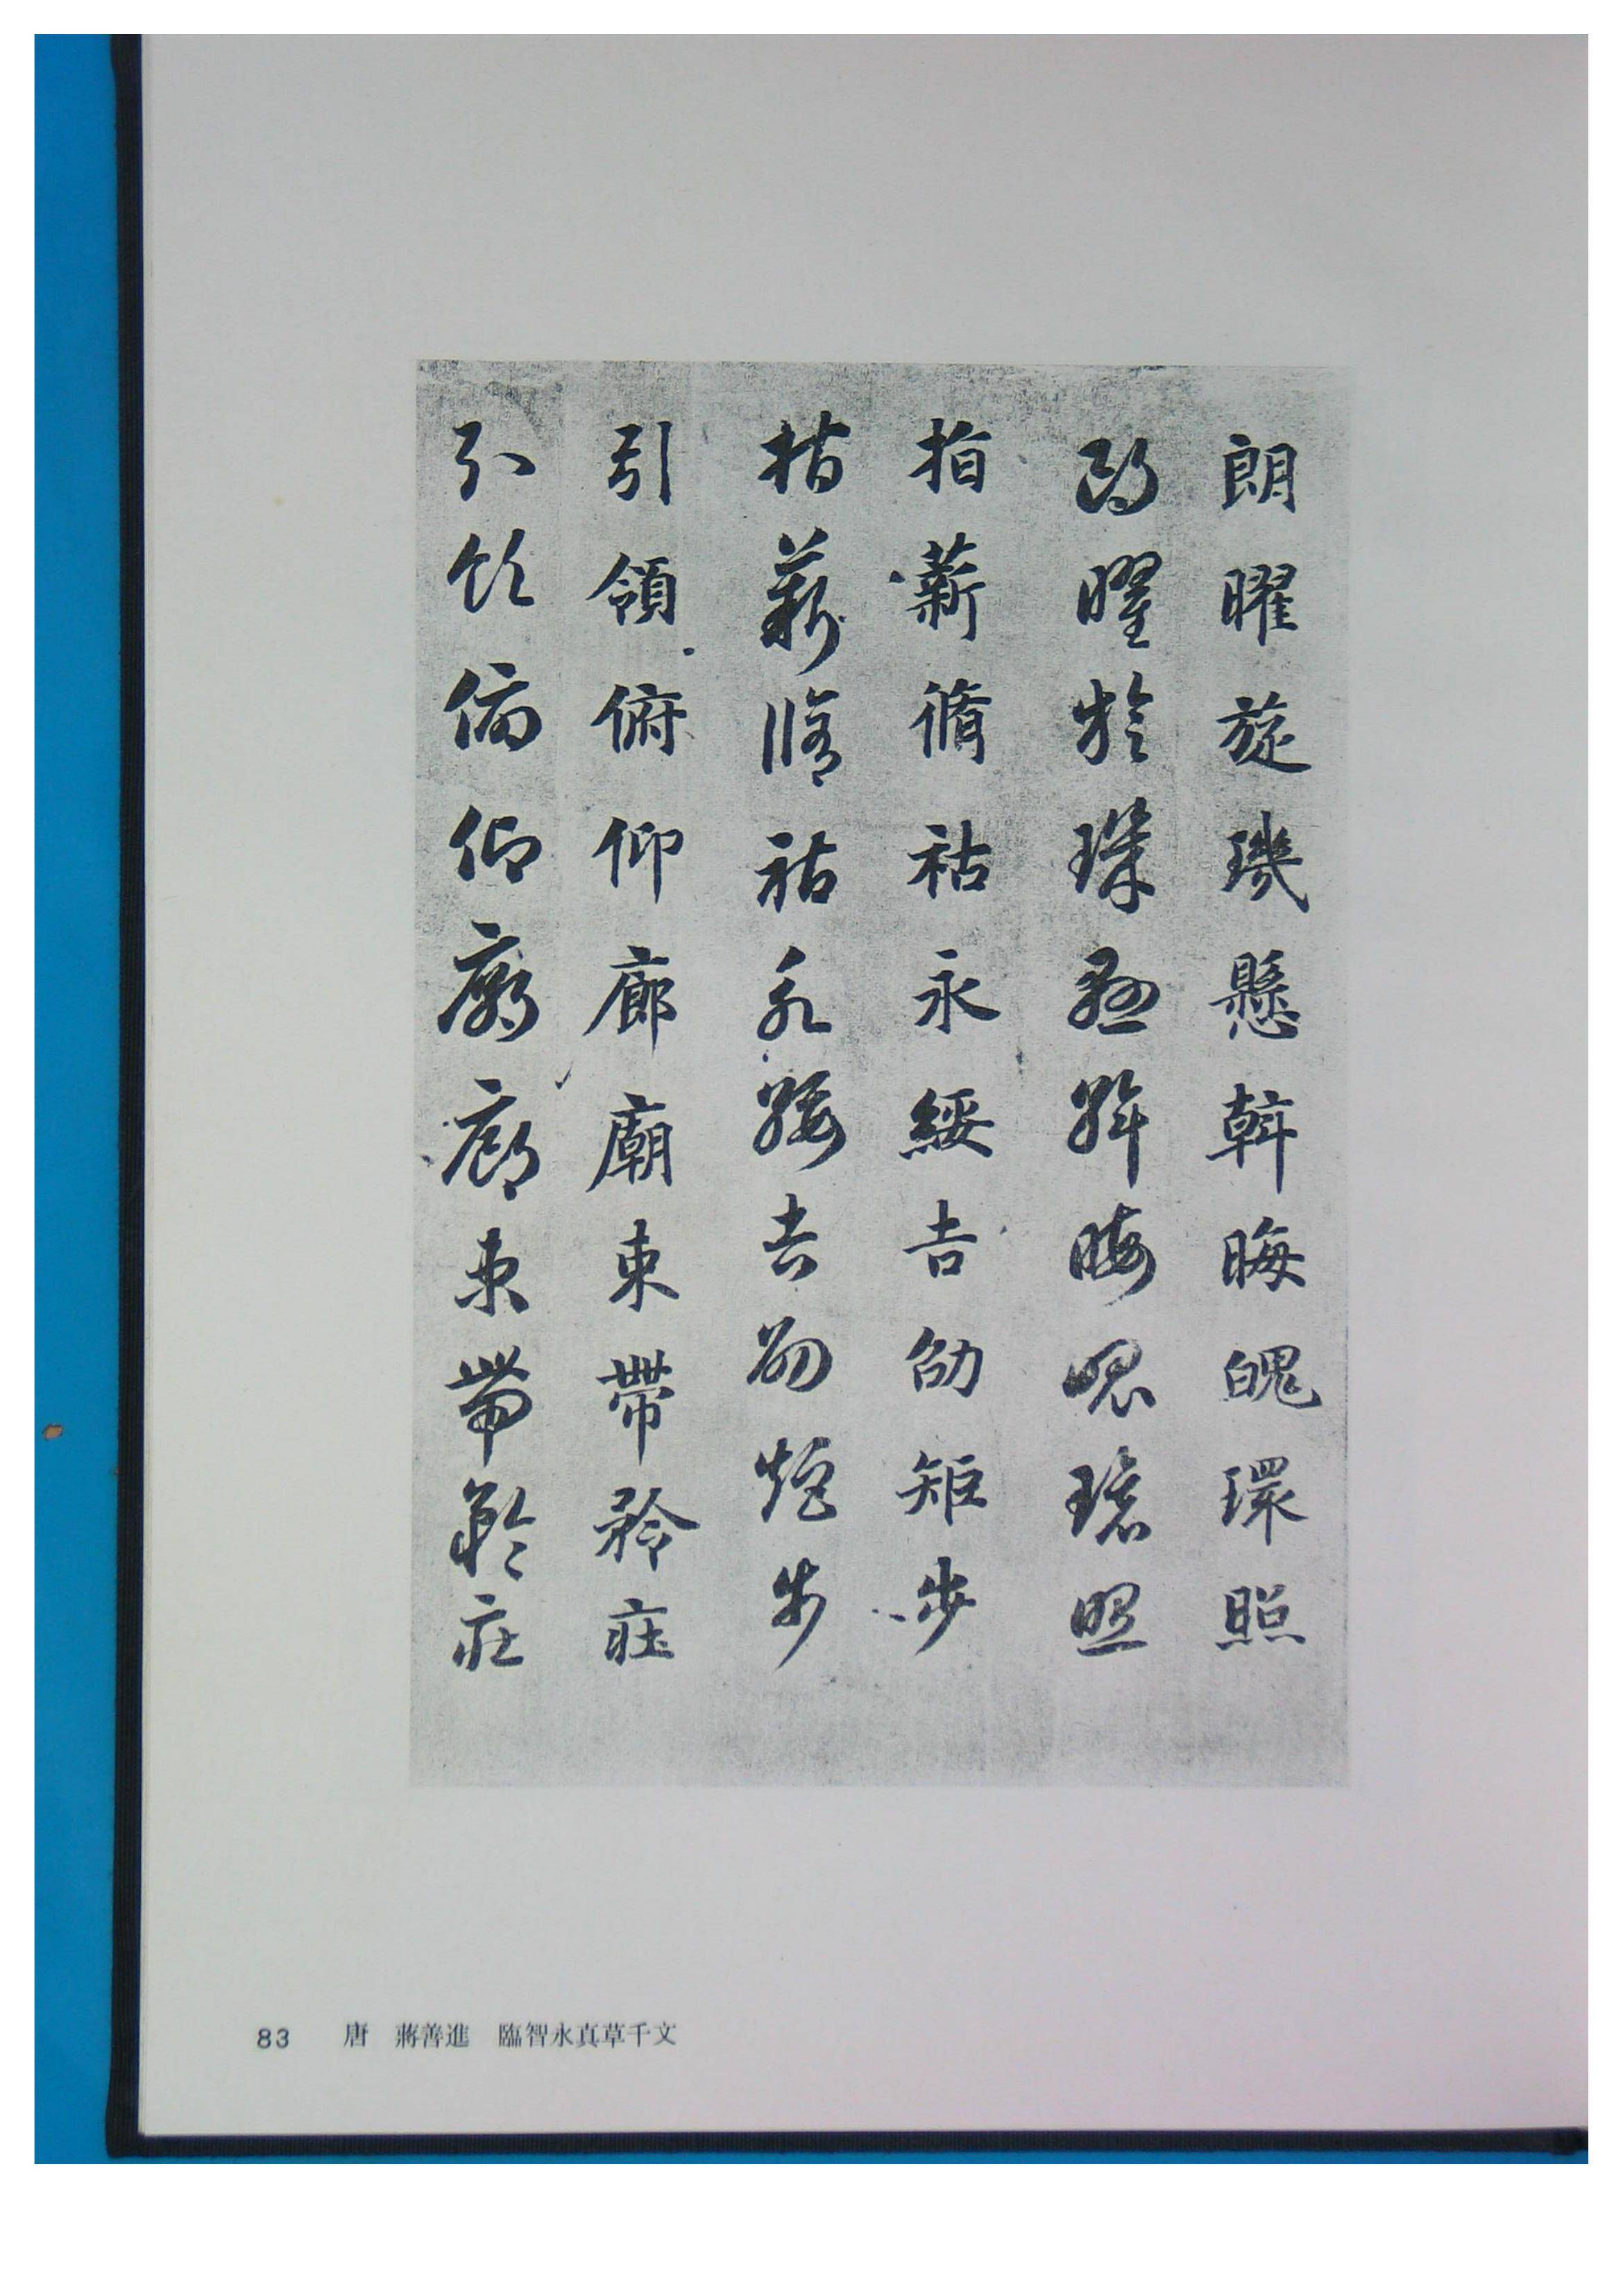 朗曜旋璣懸斡晦魄環照
朗曜旋璣懸斡晦魄環照
指薪脩祜永綏吉劭矩步
指薪脩祜永綏吉劭矩步
引領俯仰廊廟束帶矜莊
引領俯仰廊廟束帶矜莊
83 唐 蔣善進 臨智永真草千文